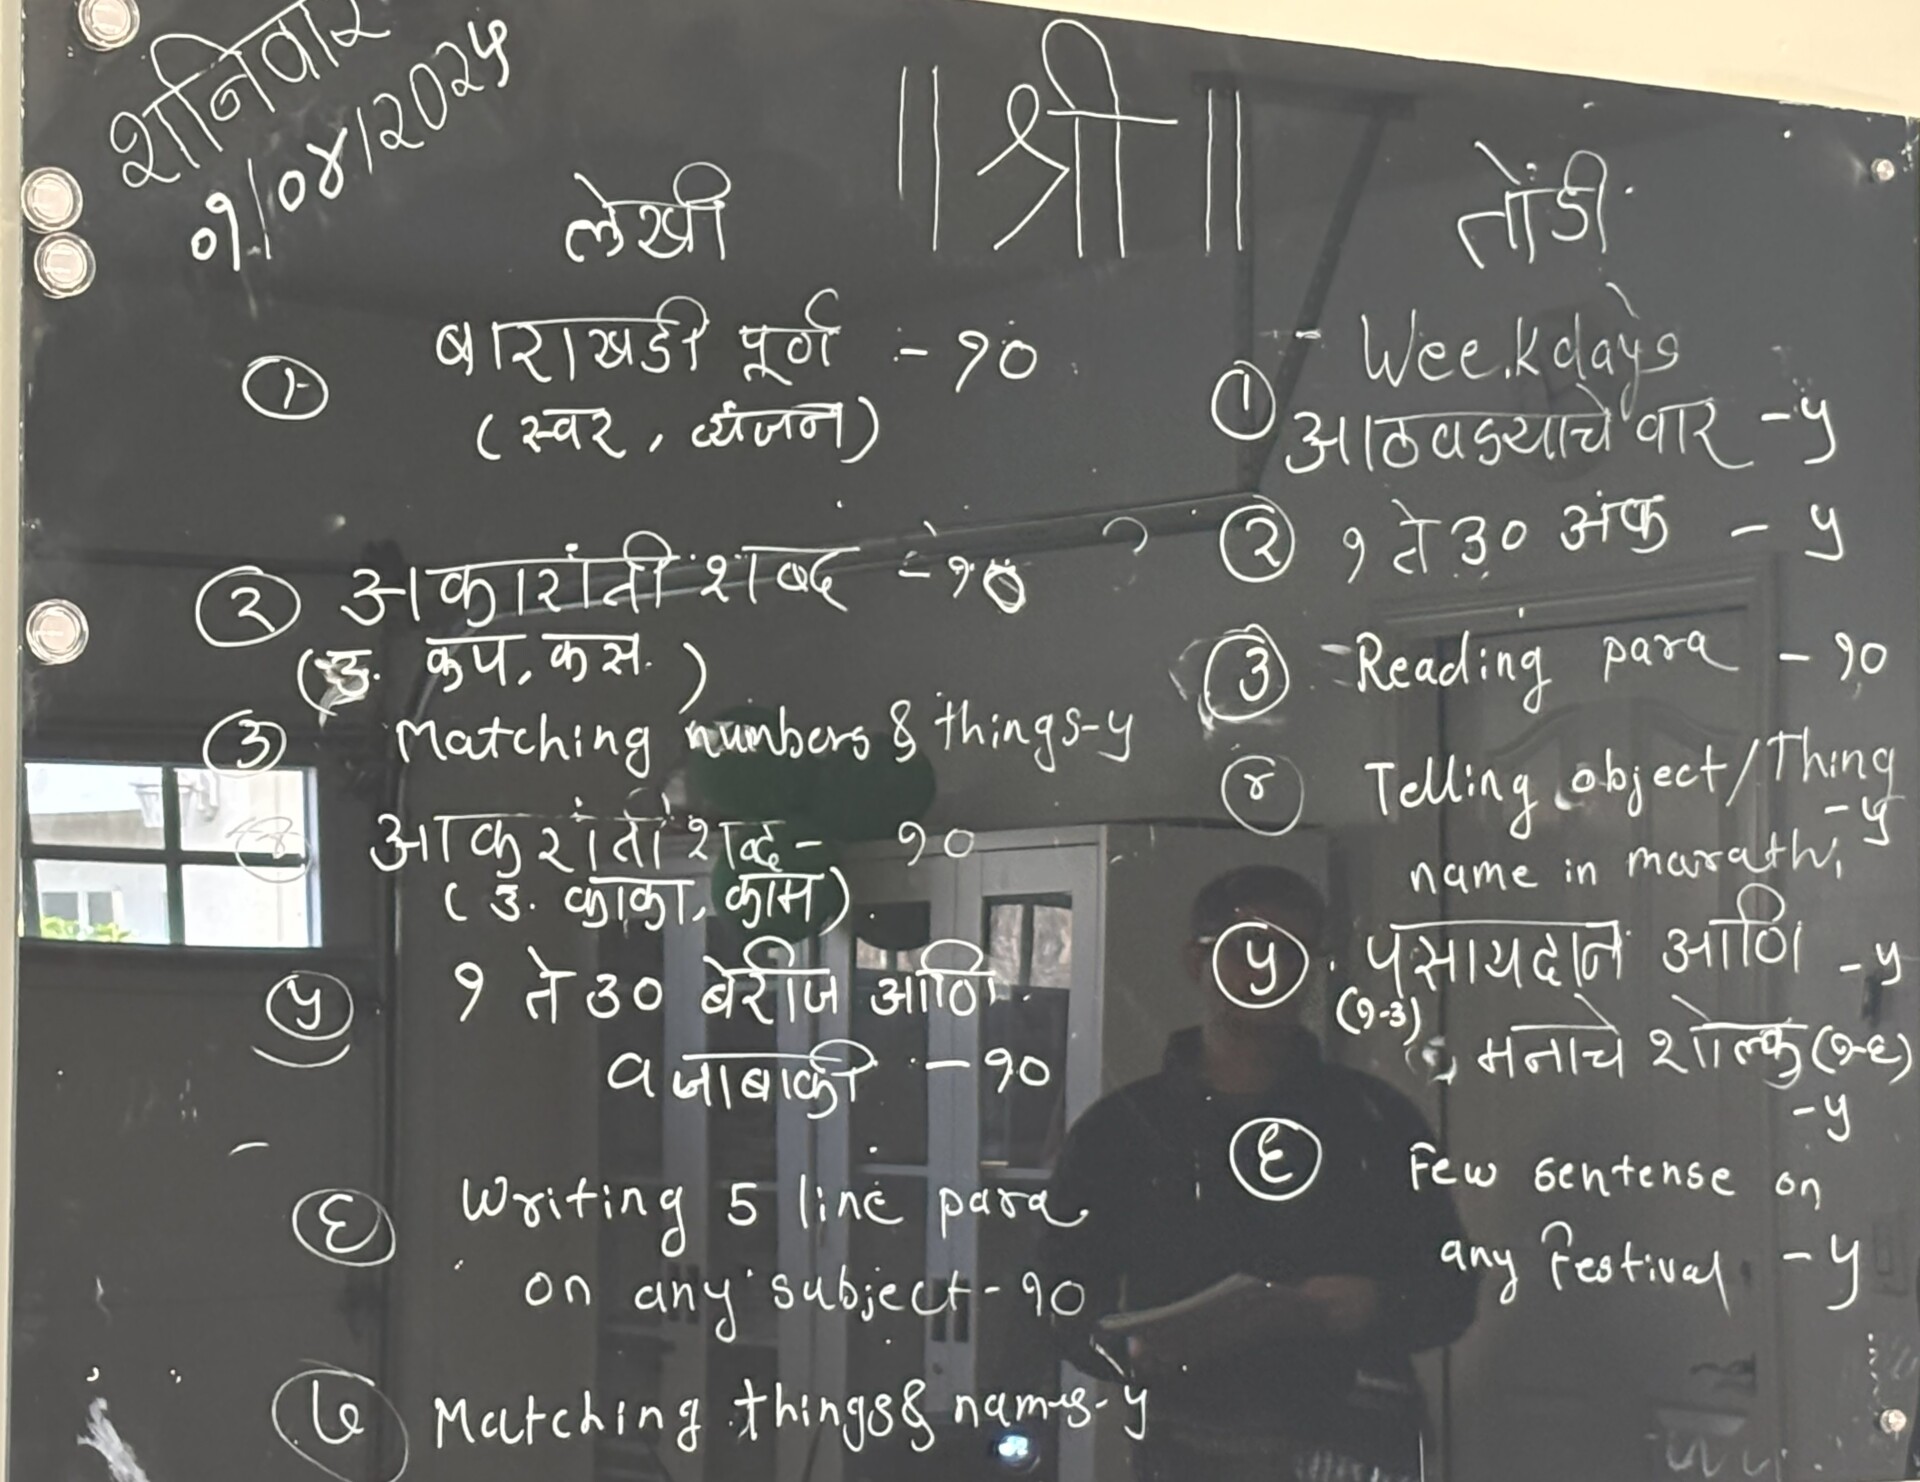 शनिवार
०१/०४/२०२५
॥ श्री ॥
लेखी
① बाराखडी पूर्ण :- १०
(स्वर, व्यंजन)
② अकारांती शब्द - १०
(उ. कप, कस.)
③ Matching numbers & things-५
आकारांती शब्द - १०
(उ. काका, काम).
⑤ १ ते ३० बेरीज आणि
वजाबाकी - १०
⑥ Writing 5 line para
on any subject - १०
⑦ Matching things & names - ५
तोंडी
- Weekdays
① आठवड्याचे वार - ५
② १ ते ३० अंक - ५
③ - Reading para - १०
④ Telling object/Thing
- ५
name in marathi
⑤ पसायदान आणि - ५
(१-३)
मनाचे शोल्क (१-६)
- ५
⑥ Few sentense on
any Festival - ५